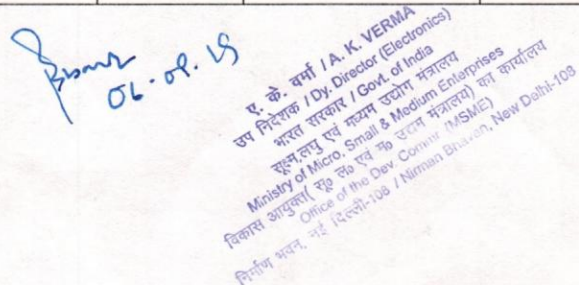 06-09-19
ए. के. वर्मा / A. K. VERMA
उप निदेशक / Dy. Director (Electronics)
भारत सरकार / Govt. of India
सूक्ष्म,लघु एवं मध्यम उद्योग मंत्रालय
Ministry of Micro, Small & Medium Enterprises
विकास आयुक्त( सू० ल० एवं म० उद्यम मंत्रालय) का कार्यालय
Office of the Dev. Commr (MSME)
निर्माण भवन, नई दिल्ली-108 / Nirman Bhavan, New Delhi-108